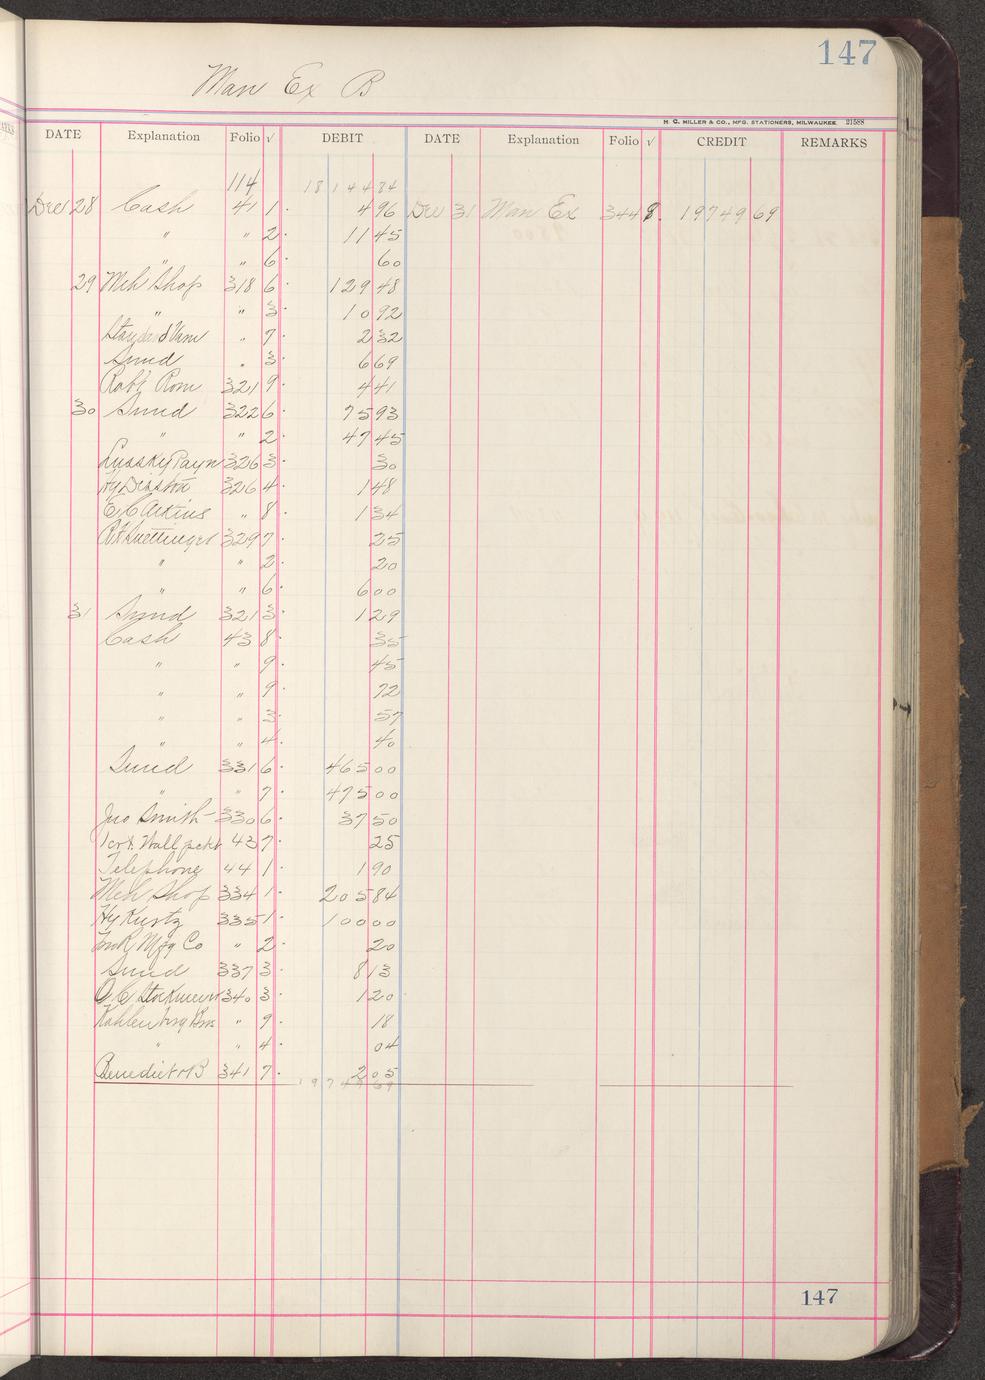 147
Man Ex B
H. C. MILLER & CO., MFG. STATIONERS, MILWAUKEE 21588
DATE Explanation Folio √ DEBIT DATE Explanation Folio √ CREDIT REMARKS
114 18144 84
Dec 28 Cash 41 1 4 96 Dec 31 Man Ex 344 8 19749 69
" " 2 11 45
" " 6 60
29 Mch Shop 318 6 129 48
" " 3 10 92
Standard Varn " 7 2 32
Sund " 3 6 69
Robt Rom 321 9 4 41
30 Sund 322 6 75 93
" " 2 47 45
Lussky Payn 326 3 30
Hy Disston 326 4 1 48
E C Atkins " 8 1 34
329 7 25
" " 2 20
" " 6 6 00
31 Sund 321 3 1 29
Cash 43 8 35
" " 9 45
" " 9 72
" " 3 57
" " 4 40
Sund 331 6 465 00
" " 7 475 00
Jno Smith 330 6 37 50
Wall 43 7 25
Telephone 44 1 1 90
Mch Shop 334 1 205 84
Hy Kurtz 335 1 100 00
Mfg Co " 2 20
Sund 337 3 8 13
O C 340 3 1 20
Kahlenberg Bros " 9 18
" " 4 04
Benedict B 341 7 2 05
19749 69
147